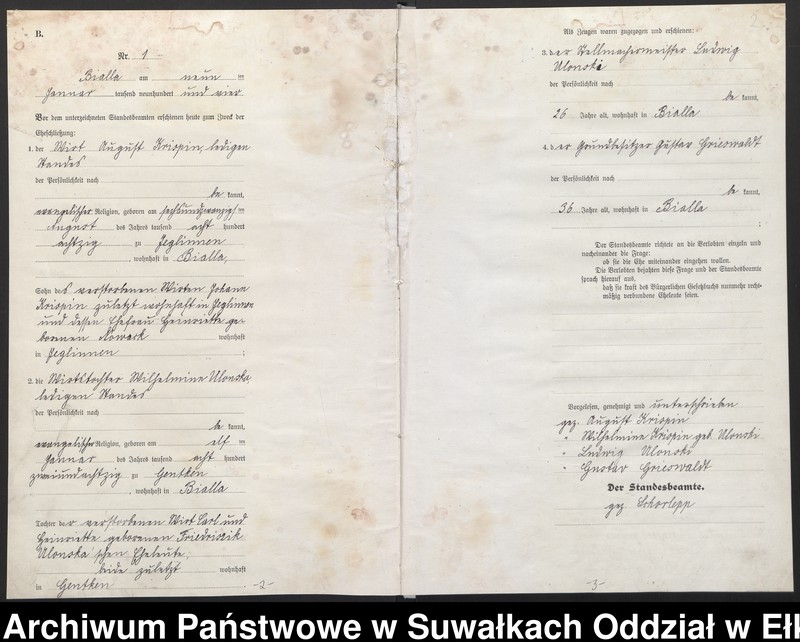 B.
Nr. 1
Bialla am neun ten
Januar tausend neunhundert und vier
Vor dem unterzeichneten Standesbeamten erschienen heute zum Zweck der
Eheschließung:
1. der Wirt August Krispin, ledigen
Standes
der Persönlichkeit nach
be kannt,
evangelischer Religion, geboren am sechsundzwanzigsten
August des Jahres tausend acht hundert
achtzig zu Jeglinnen
, wohnhaft in Bialla,
Sohn des verstorbenen Wirten Johann
Krispin zuletzt wohnhaft in Jeglinnen
und dessen Ehefrau Heinriette ge-
borenen Nowack wohnhaft
in Jeglinnen ;
2. die Wirtstochter Wilhelmine Ulonska,
ledigen Standes
der Persönlichkeit nach
be kannt,
evangelischer Religion, geboren am elf ten
Januar des Jahres tausend acht hundert
zweiundachtzig zu Gentken
, wohnhaft in Bialla
Tochter der verstorbenen Wirt Carl und
Heinriette geborenen Friedriszik
Ulonska'schen Eheleute,
beide zuletzt wohnhaft
in Gentken
-2-
2.
Als Zeugen waren zugezogen und erschienen:
3. der Stellmachermeister Ludwig
Ulonski
der Persönlichkeit nach
be kannt,
26 Jahre alt, wohnhaft in Bialla
4. der Grundbesitzer Gustav Grieswaldt
der Persönlichkeit nach
be kannt,
36 Jahre alt, wohnhaft in Bialla
;
Der Standesbeamte richtete an die Verlobten einzeln und
nacheinander die Frage:
ob sie die Ehe miteinander eingehen wollen.
Die Verlobten bejahten diese Frage und der Standesbeamte
sprach hierauf aus,
daß sie kraft des Bürgerlichen Gesetzbuchs nunmehr recht-
mäßig verbundene Eheleute seien.
Vorgelesen, genehmigt und unterschrieben
gez. August Krispin
" Wilhelmine Krispin geb. Ulonski
" Ludwig Ulonski
" Gustav Grieswaldt
Der Standesbeamte.
gez. Schorlepp
-3-
Archiwum Państwowe w Suwałkach Oddział w Eł